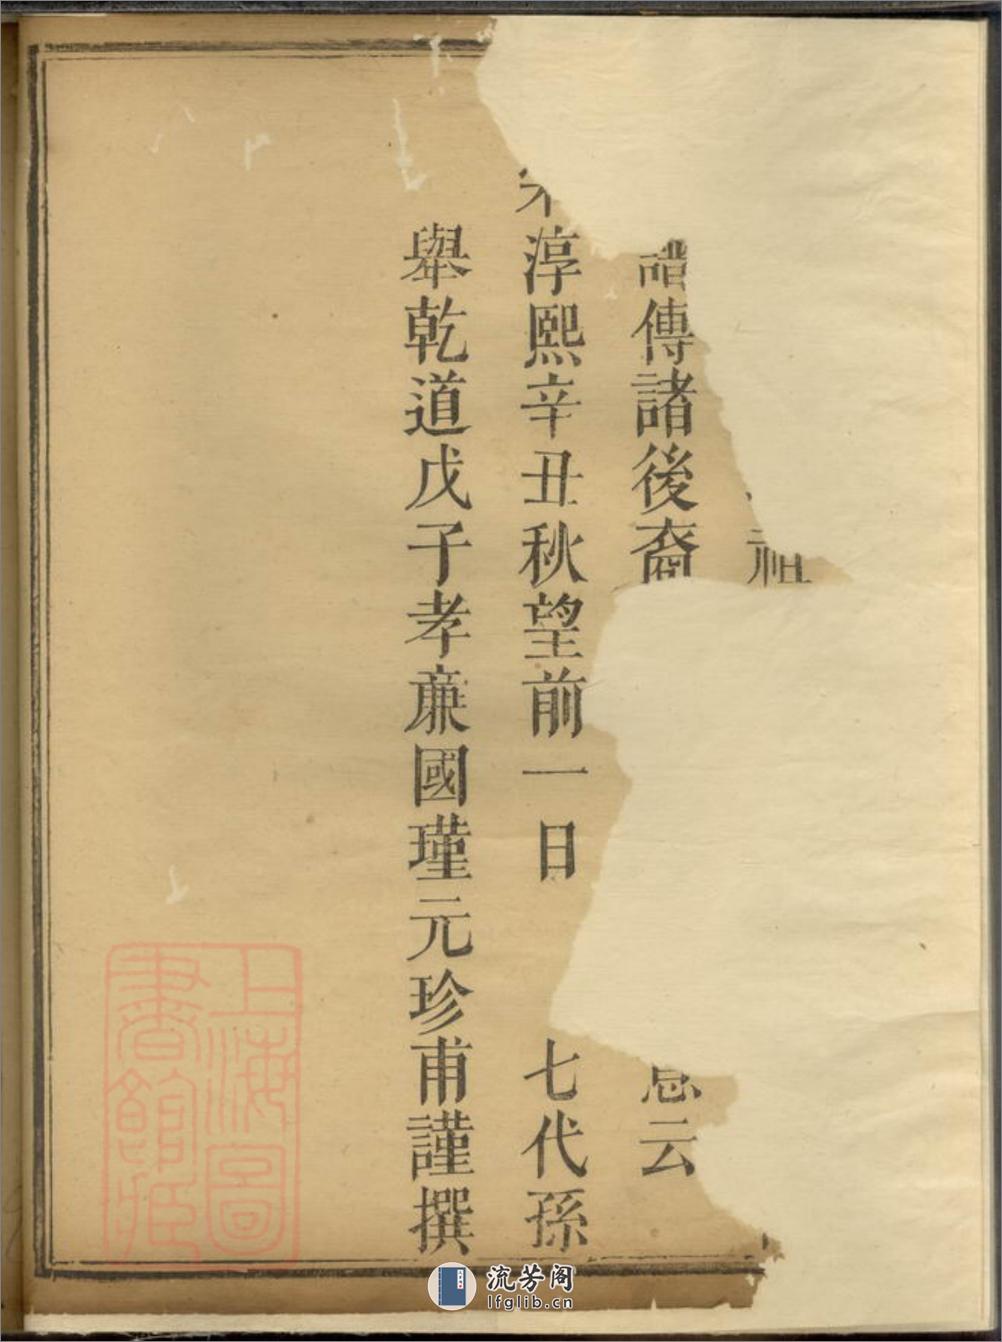 祖
譜傳諸後裔 意云
宋淳熙辛丑秋望前一日 七代孫
舉乾道戊子孝廉國瑾元珍甫謹撰
上海圖書館藏
流芳阁
lfglib.cn